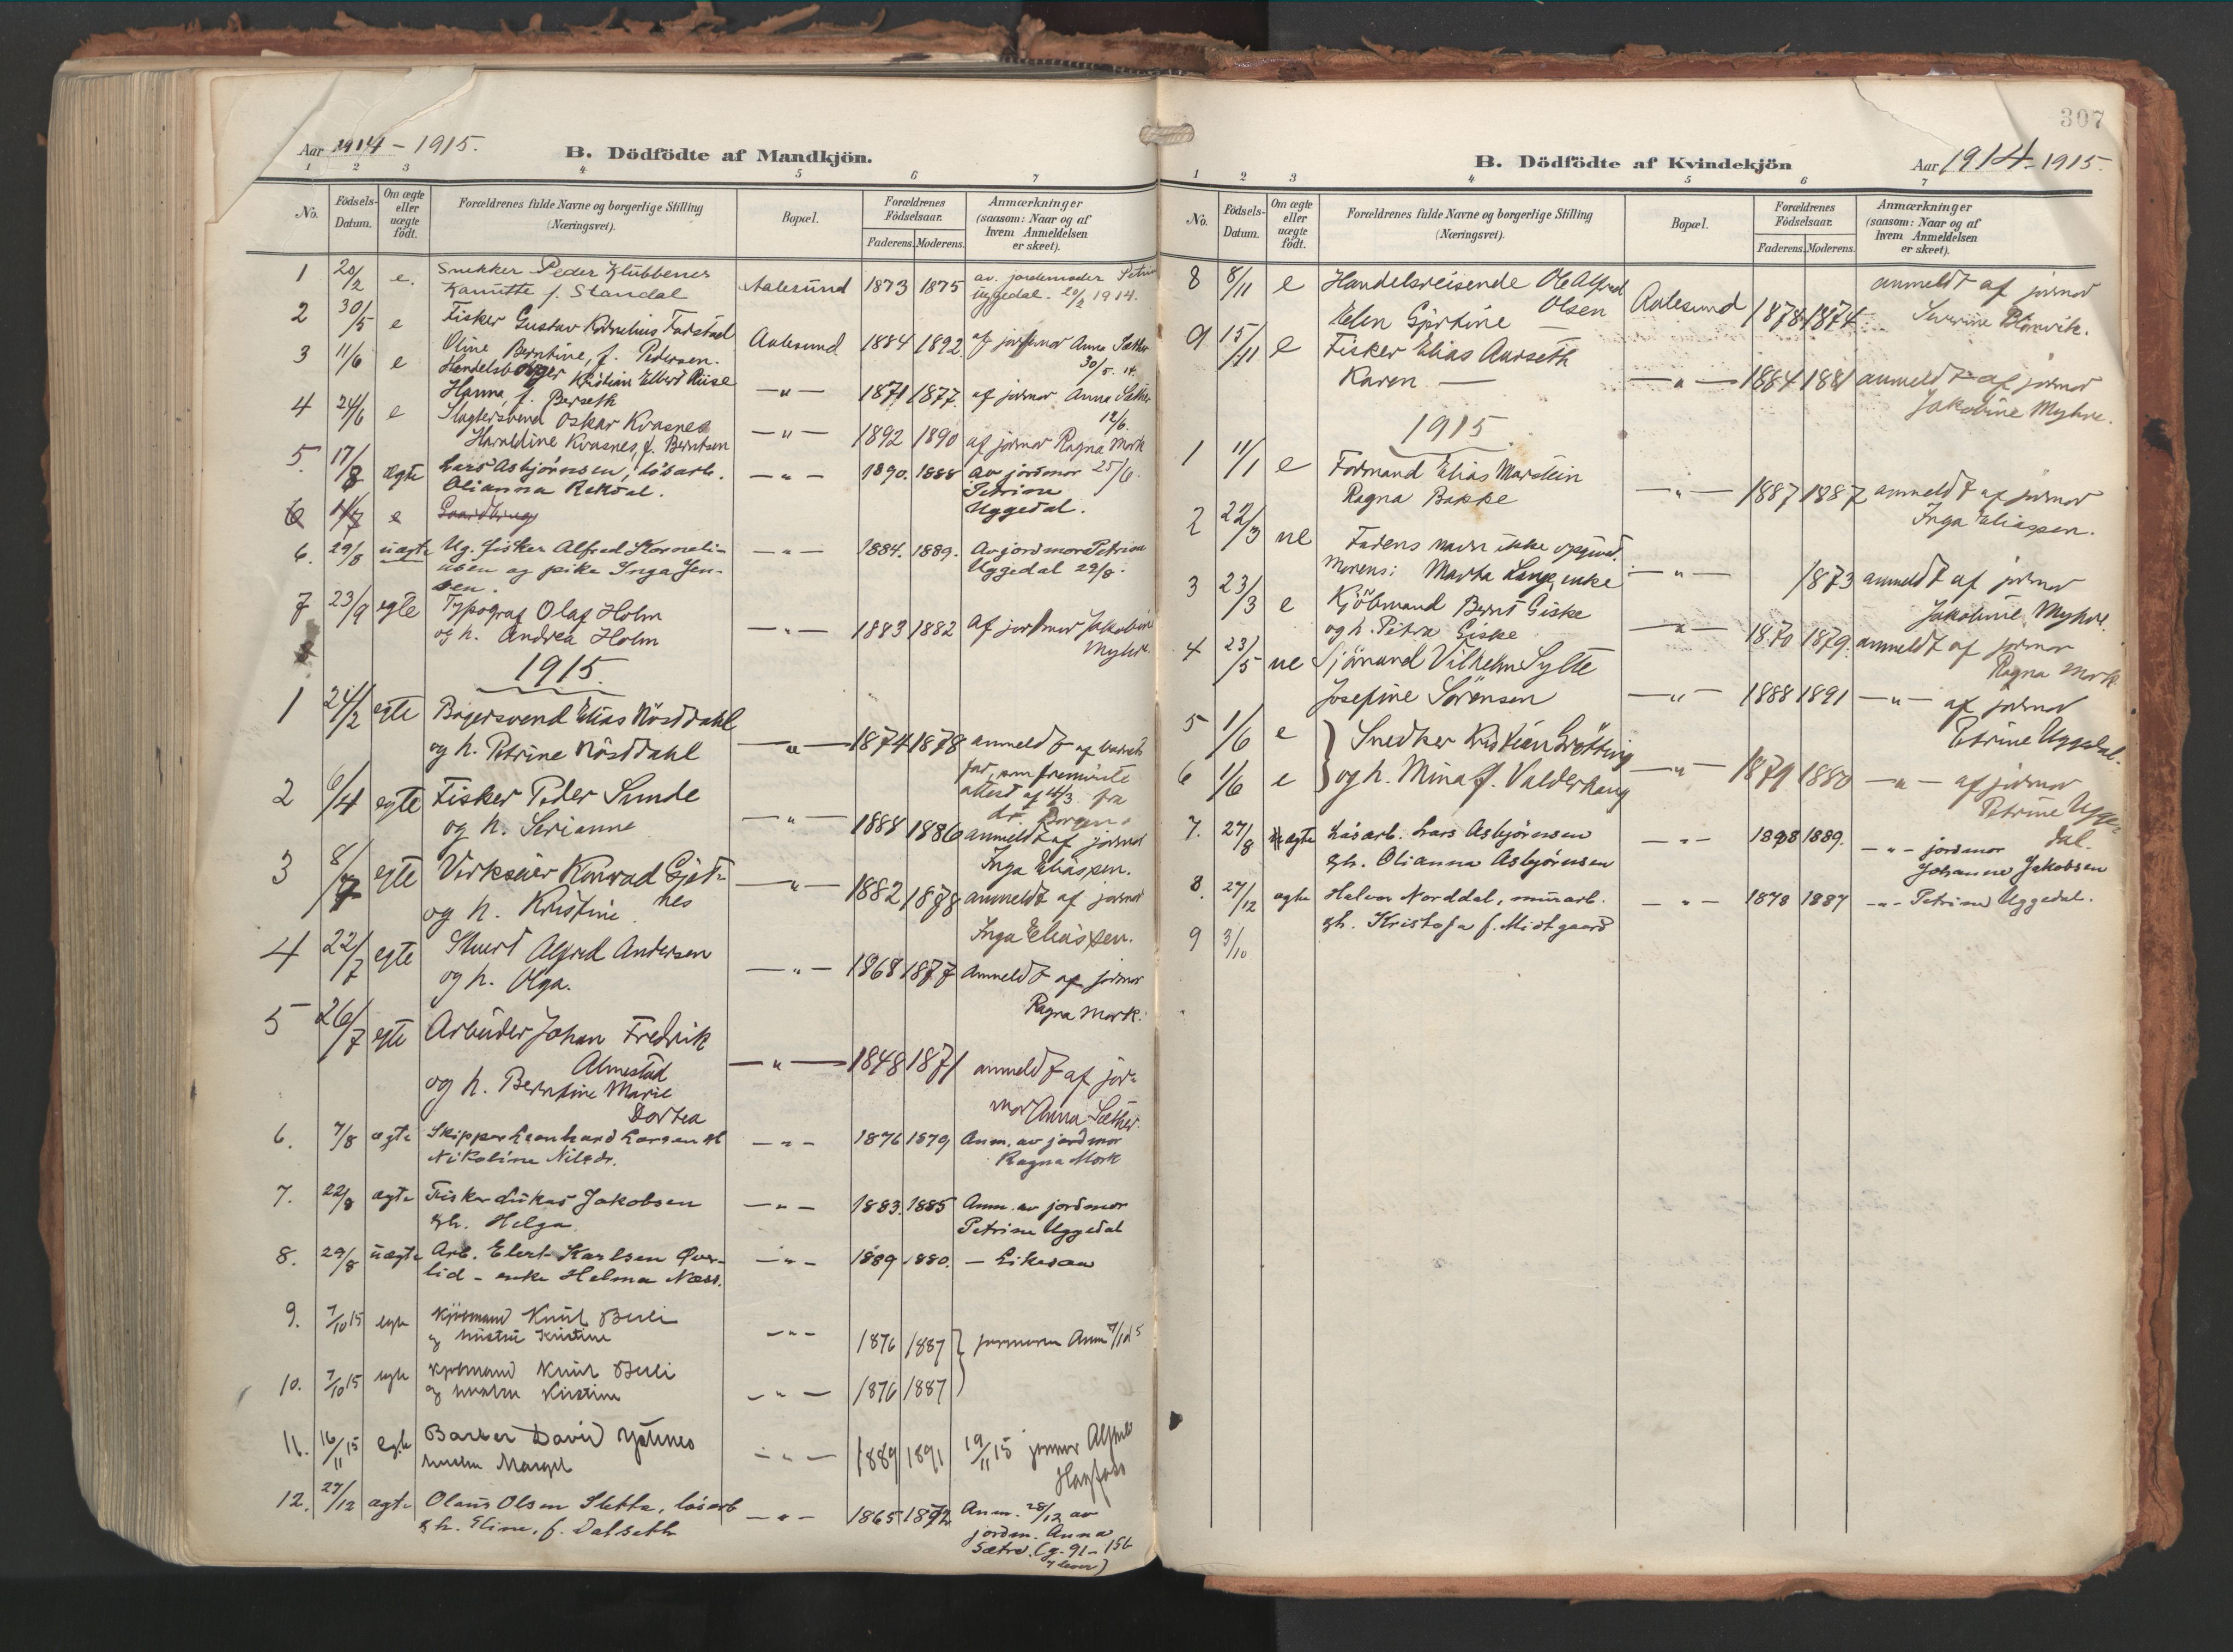 Aar 1914 - 1915.
B. Dödfödte af Mandkjön.
1 2 3 4 5 6 7
No.
Födsels-Datum.
Om ægte eller uægte födt.
Forældrenes fulde Navne og borgerlige Stilling (Næringsvei).
Bopæl.
Forældrenes Födselsaar.
Faderens. Moderens.
Anmærkninger (saasom: Naar og af hvem Anmeldelsen er skeet).
1 20/2 e. Snekker Peder Klubbenes Aalesund 1873 1875 av. jordemoder Petrine
f. Standal Uggedal. 20/2 1914.
2 30/5 e Fisker Gustav Kornelius Aalesund 1884 1892 af jordmor Anna Sæther
Oline Berntine, f. Pedersen. 30/5. 14.
3 11/6 e Kristian Elbert Riise -"- 1871 1877. af jormor Anna Sæther
Hanna, f. Berseth 12/6.
4 24/6 e Slagtersvend Oskar Kvasnes -"- 1892 1890 af jormor Ragna Mork
Haraldine Kvasnes, f. Berntsen 25/6.
5. 17/8 ægte Lars Asbjørnsen, løsarb. -"- 1890. 1888 av jordmor
Olianna Rekdal. Petrine
Uggedal.
6 e
6. 29/8 uægte Ug. fisker Alfred Korneli- -"- 1884. 1889. Av jordmor Petrine
usen og pike Inga Jen- Uggedal 29/8.
sen.
7 23/9 egte Typograf Olaf Holm -"- 1883 1882 af jordmor Jakobine
og h. Andrea Holm Myhre.
1915.
1 24/2 egte Bagersvend Elias Nösddahl
og h. Petrine Nösddahl -"- 1874 1878 anmeldt af barnets
far, som fremviste
attest af 4/3 fra
dr.
2 6/4 egte Fisker Peder Sunde
og h. Serianne -"- 1884 1886 anmeldt af jormor
Inga Eliassen.
3 8/7 egte Virkseier Konrad Gjet-
nes
og h. Kristine -"- 1882 1878 anmeldt af jormor
Inga Eliassen.
4 22/7 egte Stuert Alfred Andersen
og h. Olga. -"- 1868 1877 Anmeldt af jormor
Ragna Mork.
5 26/7 egte Arbeider Johan Fredrik
Almestad
og h. Berntine Marie
Dortea -"- 1848 1871 anmeldt af jor-
mor Anna Sæther.
6. 7/8 ægte Skipper Leonhard Larsen gh -"- 1876 1879 Anm. av jordmor
Nikoline Nilsdr. Ragna Mork
7. 22/8 ægte Fisker Lukas Jakobsen -"- 1883. 1885 Anm. av jordmor
gh. Helga. Petrine Uggedal
8. 29/8 uægte Arb. Elert Karlsen Øver- -"- 1889 1880. - Likesaa
lid - enke Helma Næss.
9. 7/10 15 egte Kjöbmand Knut Buli -"- 1876 1887
og hustru Kristine jormoren Anm 7/10 15
10. 7/10 15 egte Kjöbmand Knut Buli
og hustru Kirstine -"- 1876 1887
11. 16/11 15 egte Barber David
hustru Margit -"- 1889 1891 19/11 15 jormor
12. 27/12 ægte Olaus Olsen Sletta, løsarb -"- 1865 1872 Anm. 28/12 av
gh. Eline, f. Dalseth jordm. Anna
Sætre. (g. 91 - 15 b
7 lever)
307
B. Dödfödte af Kvindekjön
Aar 1914 - 1915.
1 2 3 4 5 6 7
No.
Födsels-Datum.
Om ægte eller uægte födt.
Forældrenes fulde Navne og borgerlige Stilling (Næringsvei).
Bopæl.
Forældrenes Födselsaar.
Faderens. Moderens.
Anmærkninger (saasom: Naar og af hvem Anmeldelsen er skeet).
8 8/11 e Handelsreisende Ole Alfred
Olsen Aalesund 1878 1874 anmeldt af jormor
Elen Gjertine - Severine Blomvik.
9 15/11 e Fisker Elias Aurseth
Karen - -"- 1884 1881 anmeldt af jormor
Jakobine Myhre.
1915
1 11/1 e Formand Elias Marstein
Ragna Bakke -"- 1887 1887 anmeldt af jormor
Inga Eliassen.
2 22/3 ue Farens navn ikke opgivet.
Morens: Marta Lange, enke -"- 1873 anmeldt af jormor
Jakobine Myhre.
3 23/3 e Kjöbmand Bernt Giske
og h. Petra Giske -"- 1870 1879. anmeldt af jormor
Ragna Mork
4 23/5 ue Sjömand Vilhelm Sylte
Josefine Sörensen -"- 1888 1891 -"- af jormor
Petrine Uggedal.
5 1/6 e Snedker Kristian Grötting
6 1/6 e og h. Mina f. Valderhaug -"- 1879 1880 -"- af jormor
Petrine Ugge-
dal.
7. 27/8 ægte Løsarb. Lars Asbjørnsen -"- 1898 1889. -"- jordmor
gh. Olianna Asbjørnsen Johanne Jakobsen
8. 27/12 ægte Halvor Norddal, murarb. -"- 1878 1887 -"- Petrine Uggedal.
gh. Kristofa f. Midtgaard
9 3/10